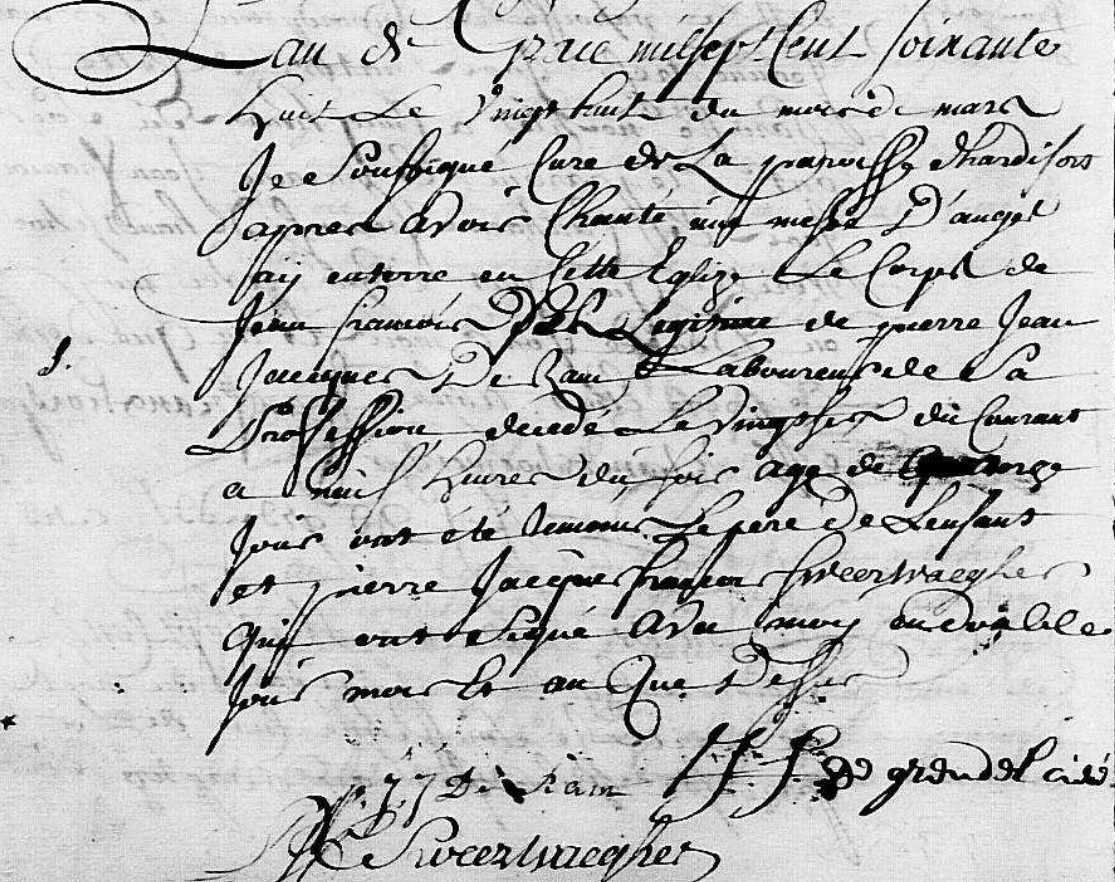 L'an de Grace mil sept Cent soixante
huit Le vingt huit du mois de mars
Je Soussigné Curé de La paroisse d'hardifort
apres avoir Chanté une messe D'angel
aÿ enterré en Cette Eglize Le Corps de
Jean francois fils Legitime de pierre Jean
Jacques De Zam Laboureur de Sa
Profession decedé Le vingt sept du Courant
a neuf heures du soir agé de onze
Jours ont été temoins Le pere de L'enfant
et pierre Jacque francois Sweerwaegher
Quij ont Signé avec moy en double
Jour mois et an Que Dessus
p. J. J. De Zam J. F. De grendel curé
Sweerwaegher
S.